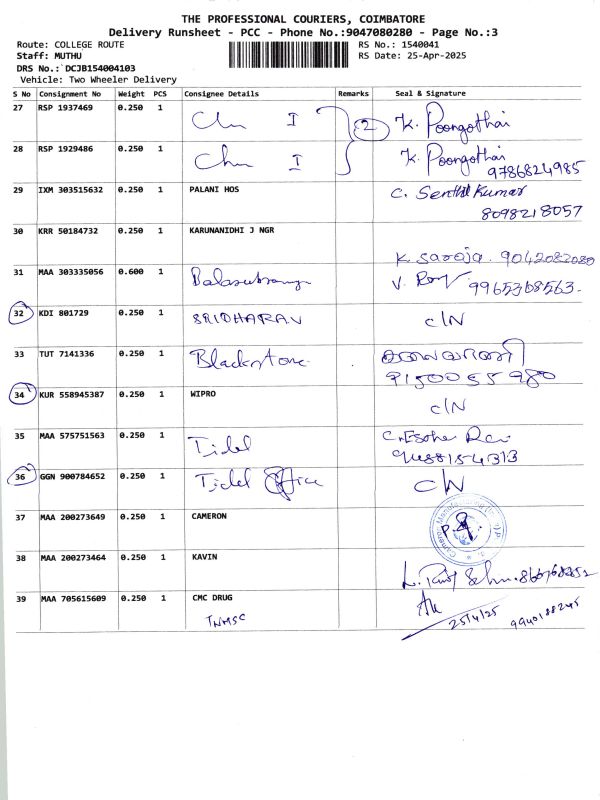 THE PROFESSIONAL COURIERS, COIMBATORE
Delivery Runsheet - PCC - Phone No.:9047080280 - Page No.:3
Route: COLLEGE ROUTE RS No.: 1540041
Staff: MUTHU RS Date: 25-Apr-2025
DRS No.: DCJB154004103
Vehicle: Two Wheeler Delivery
S No Consignment No Weight PCS Consignee Details Remarks Seal & Signature
27 RSP 1937469 0.250 1 I 2 K. Poongothai
28 RSP 1929486 0.250 1 I K. Poongothai
9786824985
29 IXM 303515632 0.250 1 PALANI HOS C. Senthil Kumar
8098218057
30 KRR 50184732 0.250 1 KARUNANIDHI J NGR
K. saroja. 9042082080
31 MAA 303335056 0.600 1 V. 9965368563.
32 KDI 801729 0.250 1 SRIDHARAN C/N
33 TUT 7141336 0.250 1 Blackstone
9150055980
34 KUR 558945387 0.250 1 WIPRO
C/N
35 MAA 575751563 0.250 1 Tidel
36 GGN 900784652 0.250 1 Tidel Office C/N
37 MAA 200273649 0.250 1 CAMERON
38 MAA 200273464 0.250 1 KAVIN
39 MAA 705615609 0.250 1 CMC DRUG
TNMSC 25/4/25